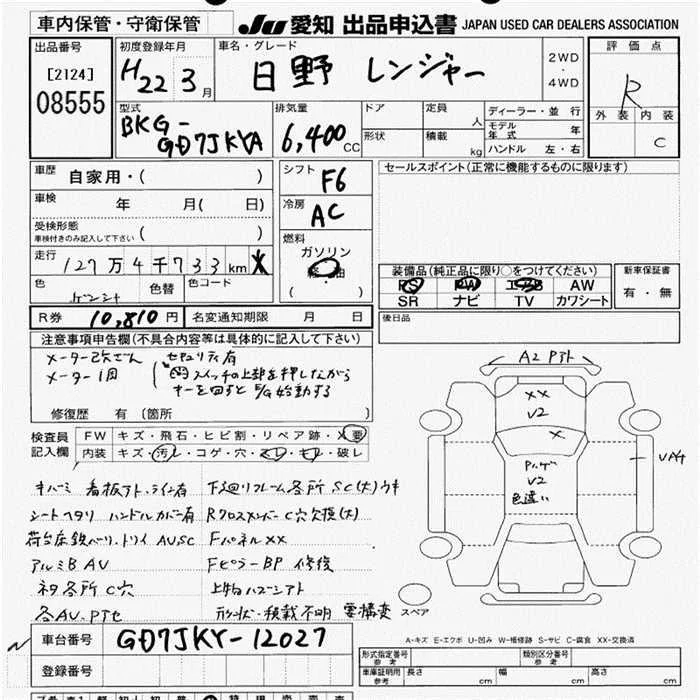 車内保管・守衛保管
JU 愛知 出品申込書 JAPAN USED CAR DEALERS ASSOCIATION
出品番号
[2124]
08555
初度登録年月
H22 3月
車名・グレード
日野 レンジャー
2WD
・
4WD
評価点
R
外装 内装
C
型式
BKG-
GD7JKYA
排気量
6,400 CC
ドア
形状
定員 人
積載 kg
ディーラー・並行
モデル年式 年
ハンドル 左・右
車歴 自家用・( )
車検 年 月( 日)
受検形態
車検付きのみ記入して下さい ( )
走行 127万4千733km
色
色替
色コード
シフト F6
冷房 AC
燃料
ガソリン
軽油
( )
セールスポイント(正常に機能するものに限ります)
装備品(純正品に限り○をつけてください)
PS PW エアB AW
SR ナビ TV カワシート
新車保証書
有・無
R券 10,810円
名変通知期限 月 日
後日品
注意事項申告欄(不具合内容等は具体的に記入して下さい)
メーター1回
セキュリティ有
スイッチの上部を押しながら
キーを回すとE/G始動する
修復歴 有 (箇所 )
検査員
記入欄
FW キズ・飛石・ヒビ割・リペア跡・X要
内装 キズ・汚レ・コゲ・穴・スレ・キレ・破レ
キバミ 看板アト、ライン有
下廻りフレーム各所SC(大)ウキ
シートヘタリ ハンドルカバー有
RクロスメンバーC穴欠損(大)
FパネルXX
アルミBAV
FピラーBP 修復
ネタ各所C穴
各AV、Pアセ
形状・積載不明 要構変
車台番号 GD7JKY-12027
登録番号
A2 Pアト
XX
V2
X
Pハゲ
V2
色違い
スペア
A-キズ E-エクボ U-凹み W-補修跡 S-サビ C-腐食 XX-交換済
形式指定番号
参考
類別区分番号
参考
車庫証明用
参考
長さ cm
幅 cm
高さ cm